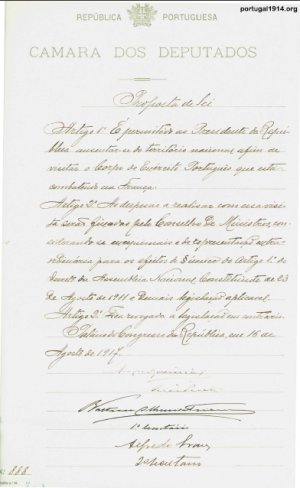 portugal1914.org
REPÚBLICA PORTUGUESA
CAMARA DOS DEPUTADOS
Proposta de lei
Artigo 1º É permitido ao Presidente da Repú-
blica ausentar-se do territorio nacional afim de
visitar o Corpo do Exercito Português que está
combatendo na França.
Artigo 2º As despesas a realisar com essa visi-
ta serão fixadas pelo Conselho de Ministros, con-
siderando-se de representação extra-
ordinaria para os efeitos do do Artigo 1º do
decreto da Assembleia Nacional Constituinte de 23
de Agosto de 1911 e demais legislação aplicavel.
Artigo 3º Fica revogada a legislação em contrario.
Palacio do Congresso da Republica, em 16 de
Agosto de 1917.
1º Secretario
Alfredo
2º Secretario